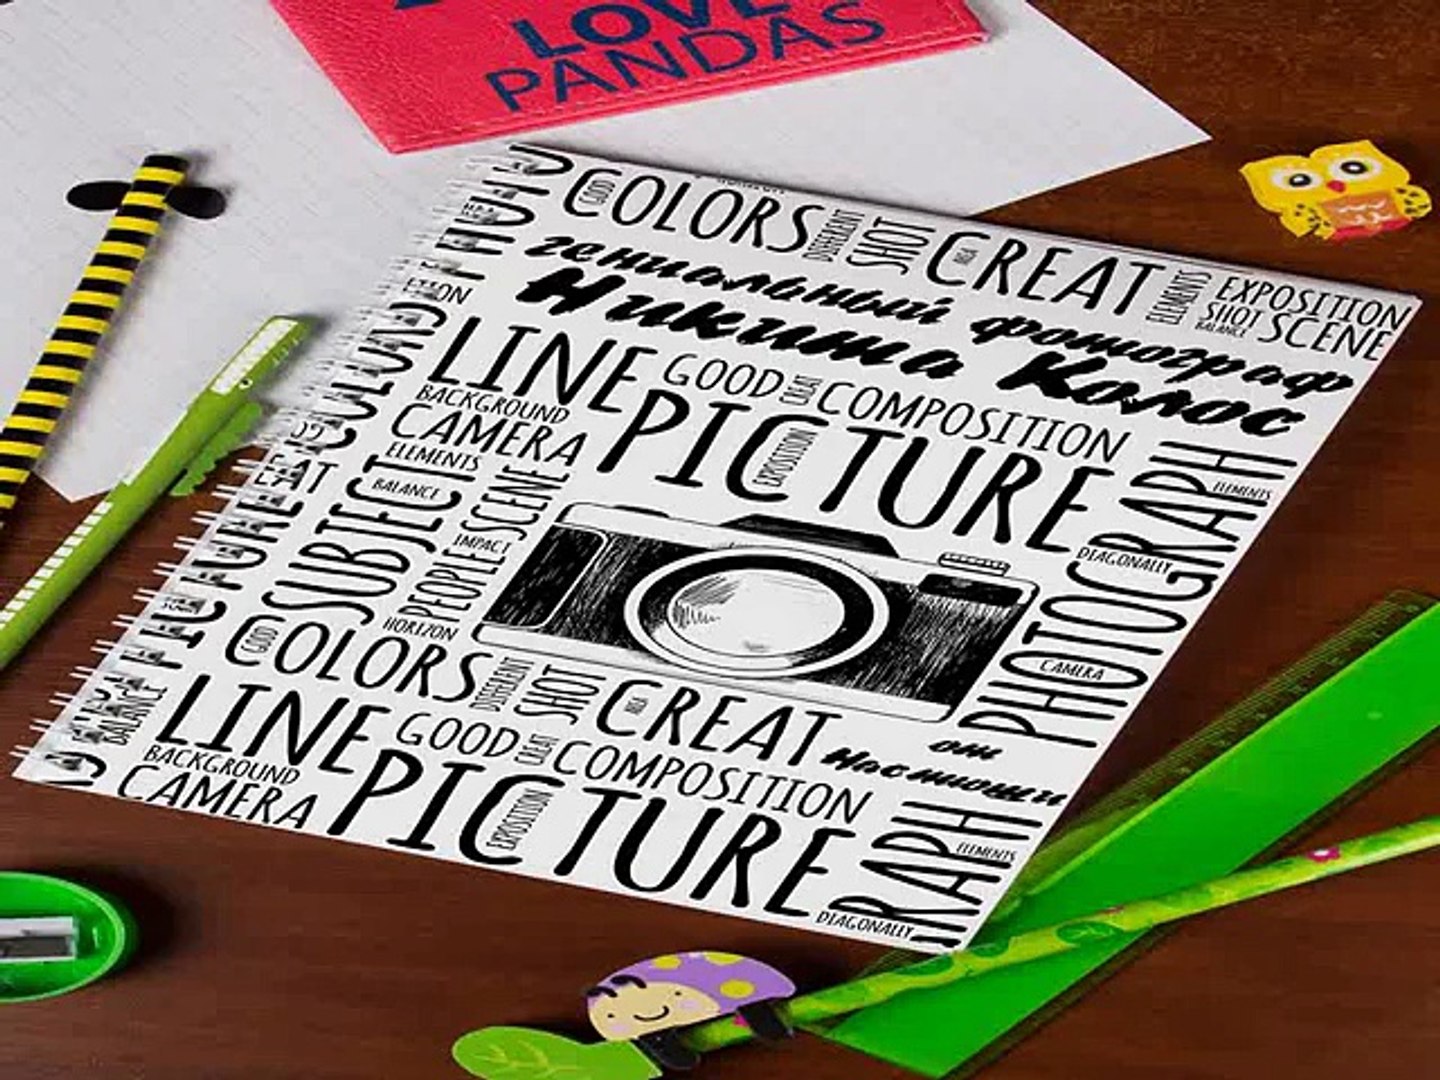 LOVE
PANDAS
GOOD COLORS DIFFERENT SHOT CREAT ELEMENTS EXPOSITION
SHOT SCENE
BALANCE
гениальный фотограф
Никита Колос
LINE GOOD CREAT COMPOSITION
BACKGROUND
CAMERA PICTURE
EXPOSITION
ELEMENTS
SUBJECT
BALANCE
SCENE
IMPACT
PEOPLE
HORIZON
PHOTOGRAPH
ELEMENTS
DIAGONALLY
CAMERA
GOOD COLORS DIFFERENT SHOT CREAT
от
Настюши
LINE GOOD CREAT COMPOSITION
BACKGROUND
CAMERA PICTURE
EXPOSITION
RAPH
ELEMENTS
DIAGONALLY
BALANCE